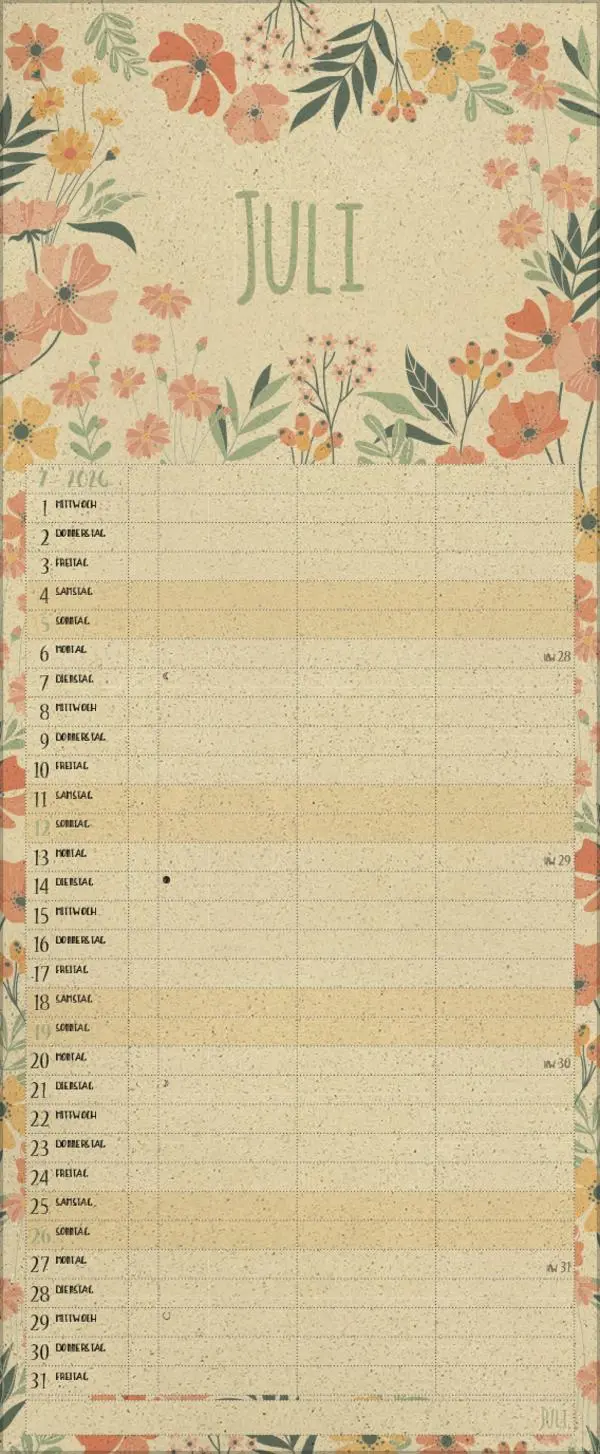 JULI
7 2026
1 MITTWOCH
2 DONNERSTAG
3 FREITAG
4 SAMSTAG
5 SONNTAG
6 MONTAG KW 28
7 DIENSTAG
8 MITTWOCH
9 DONNERSTAG
10 FREITAG
11 SAMSTAG
12 SONNTAG
13 MONTAG KW 29
14 DIENSTAG
15 MITTWOCH
16 DONNERSTAG
17 FREITAG
18 SAMSTAG
19 SONNTAG
20 MONTAG KW 30
21 DIENSTAG
22 MITTWOCH
23 DONNERSTAG
24 FREITAG
25 SAMSTAG
26 SONNTAG
27 MONTAG KW 31
28 DIENSTAG
29 MITTWOCH
30 DONNERSTAG
31 FREITAG
JULI